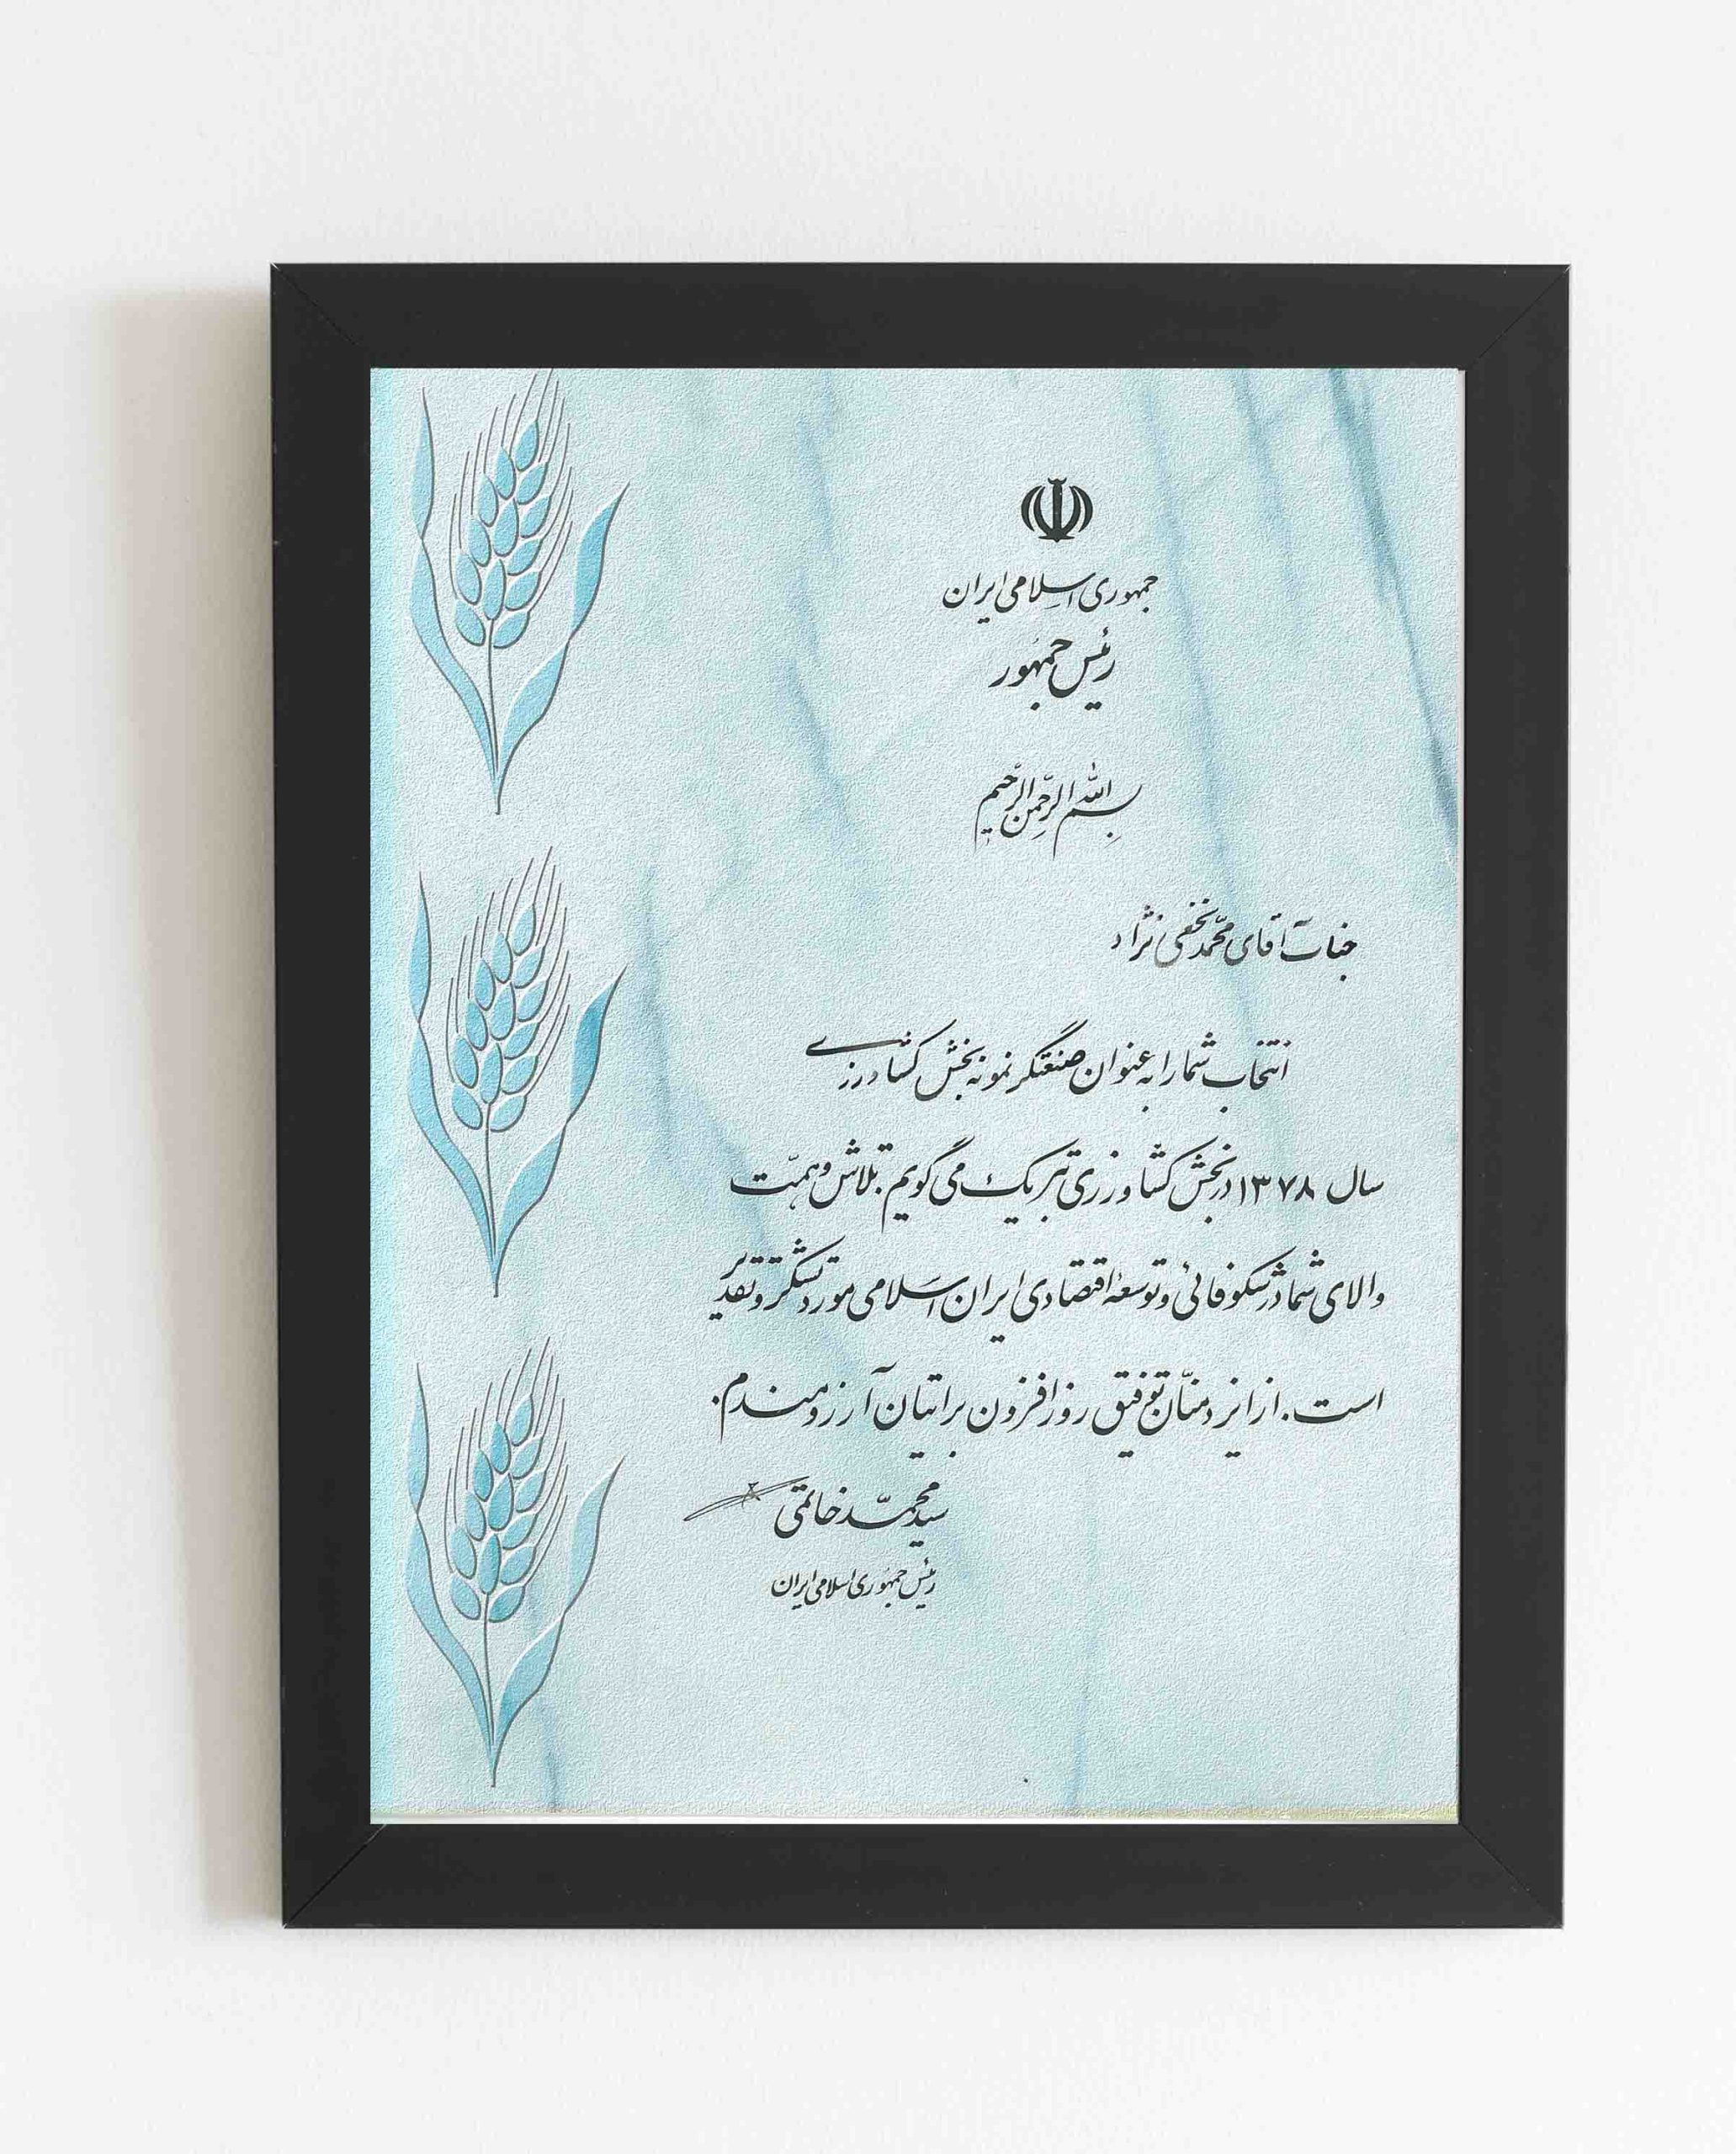 جمهوری اسلامی ایران
رئیس جمهور
بسم الله الرحمن الرحیم
جناب آقای محمد نجفی نژاد
انتخاب شما را به عنوان صنعتگر نمونه بخش کشاورزی
سال ۱۳۷۸ در بخش کشاورزی تبریک می گویم. تلاش و همّت
والای شما در شکوفائی و توسعهٔ اقتصادی ایران اسلامی مورد تشکر و تقدیر
است. از ایزد منّان توفیق روز افزون برایتان آرزومندم.
سید محمّد خاتمی
رئیس جمهوری اسلامی ایران